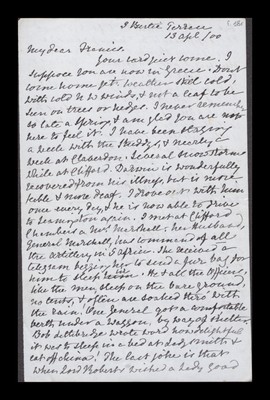 3 Bertie Terrace
13 Apl /00
My dear Francis.
Your card just come. I
suppose you are now in Greece. Don't
come home yet. Weather still cold,
with cold N.W winds, & not a leaf to be
seen on trees or hedges. I never remember
so late a Spring, & am glad you are not
here to feel it. I have been staying
a week with the Studdys, & nearly a
week at Claverdon. Several snow storms
while at Clifford. Darwin is wonderfully
recovered from his illness, but is more
feeble & more deaf. I drove out with him
once every day, & he is now able to drive
to Leamington again. I met at Clifford
Chambers a Mrs Marshall. her Husband,
General Marshall, has command of all
the artillery in S. Africa. She received a
telegram begging her to send a fur bag for
him to sleep in. He & all the Officers,
like the men, sleep on the bare ground,
no tents, & often are soaked thro' with
the rain. One General got a comfortable
berth under a Waggon, by way of shelter.
Bob Lethbridge wrote word how delightful
it was to sleep in a bed at Ladysmith &
eat off china! The last joke is that
when Lord Roberts wished a Lady Good